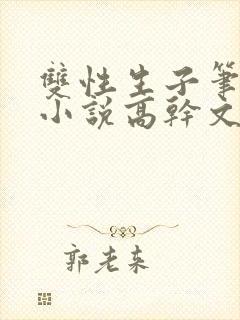 雙性生子筆
小說高幹文
郭老來